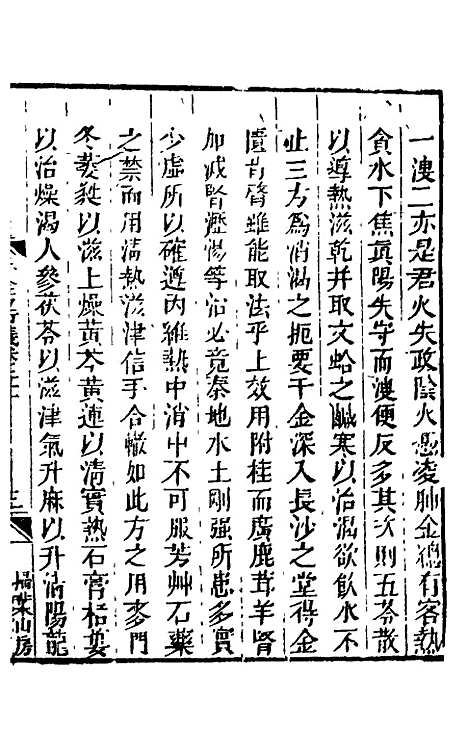 一溲二亦是君火失政陰火憑凌肺金總有客熱
貪水下焦眞陽失守而溲便反多其次則五苓散
以導熱滋乾并取文蛤之鹹寒以治渴欲飲水不
止三方爲消渴之扼要千金深入長沙之堂得金
匱旨腎雖能取法乎上效用附桂而廣鹿茸羊腎
加減腎瀝惕等治必竟秦地水土剛強所患多實
少虛所以確遵內經熱中消中不可服芳艸石藥
之禁而用清熱滋津信手合轍如此方之用麥門
冬葳蕤以滋上燥黃芩黃連以清實熱石膏栝蔞
以治燥渴人參茯苓以滋津氣升麻以升清陽龍
千金方衍義卷之
掃葉山房